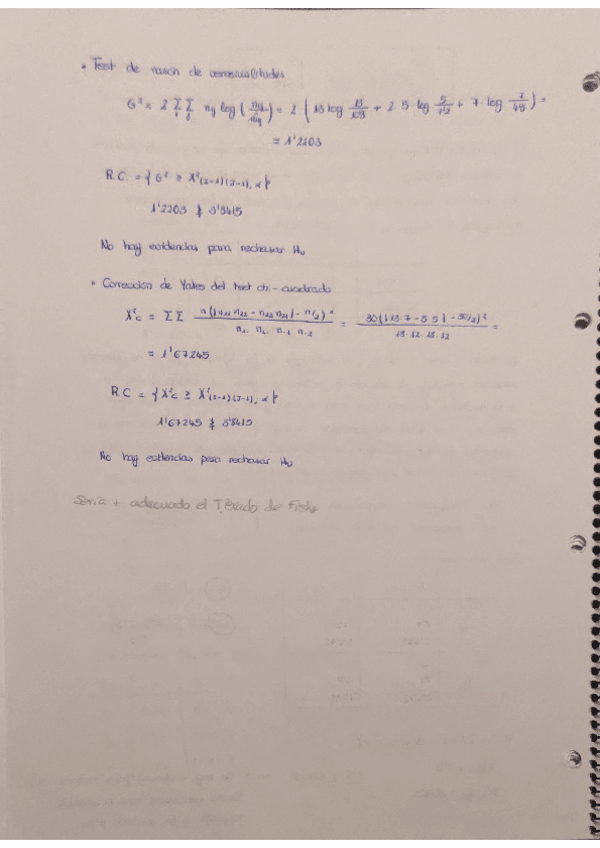 • Test de razón de verosimilitudes
G² = 2 Σ Σ nij log ( ) = 2 ( 13 log + 2 · 5 · log + 7 · log ) =
= 1'2203
R.C. = { G² ≥ X²(I-1)(J-1), α }
1'2203 ≱ 3'8415
No hay evidencias para rechazar H₀
• Corrección de Yates del test chi-cuadrado
X²c = Σ Σ n(|n11 n22 - n12 n21| - n/2)² / n1. n2. n.1 n.2 = 30(|13·7 - 5·5| - 30/2)² / 18·12·18·12 =
= 1'67245
R.C = { X²c ≥ X²(I-1)(J-1), α }
1'67245 ≱ 3'8415
No hay evidencias para rechazar H₀
Sería + adecuado el T. Exacto de Fisher